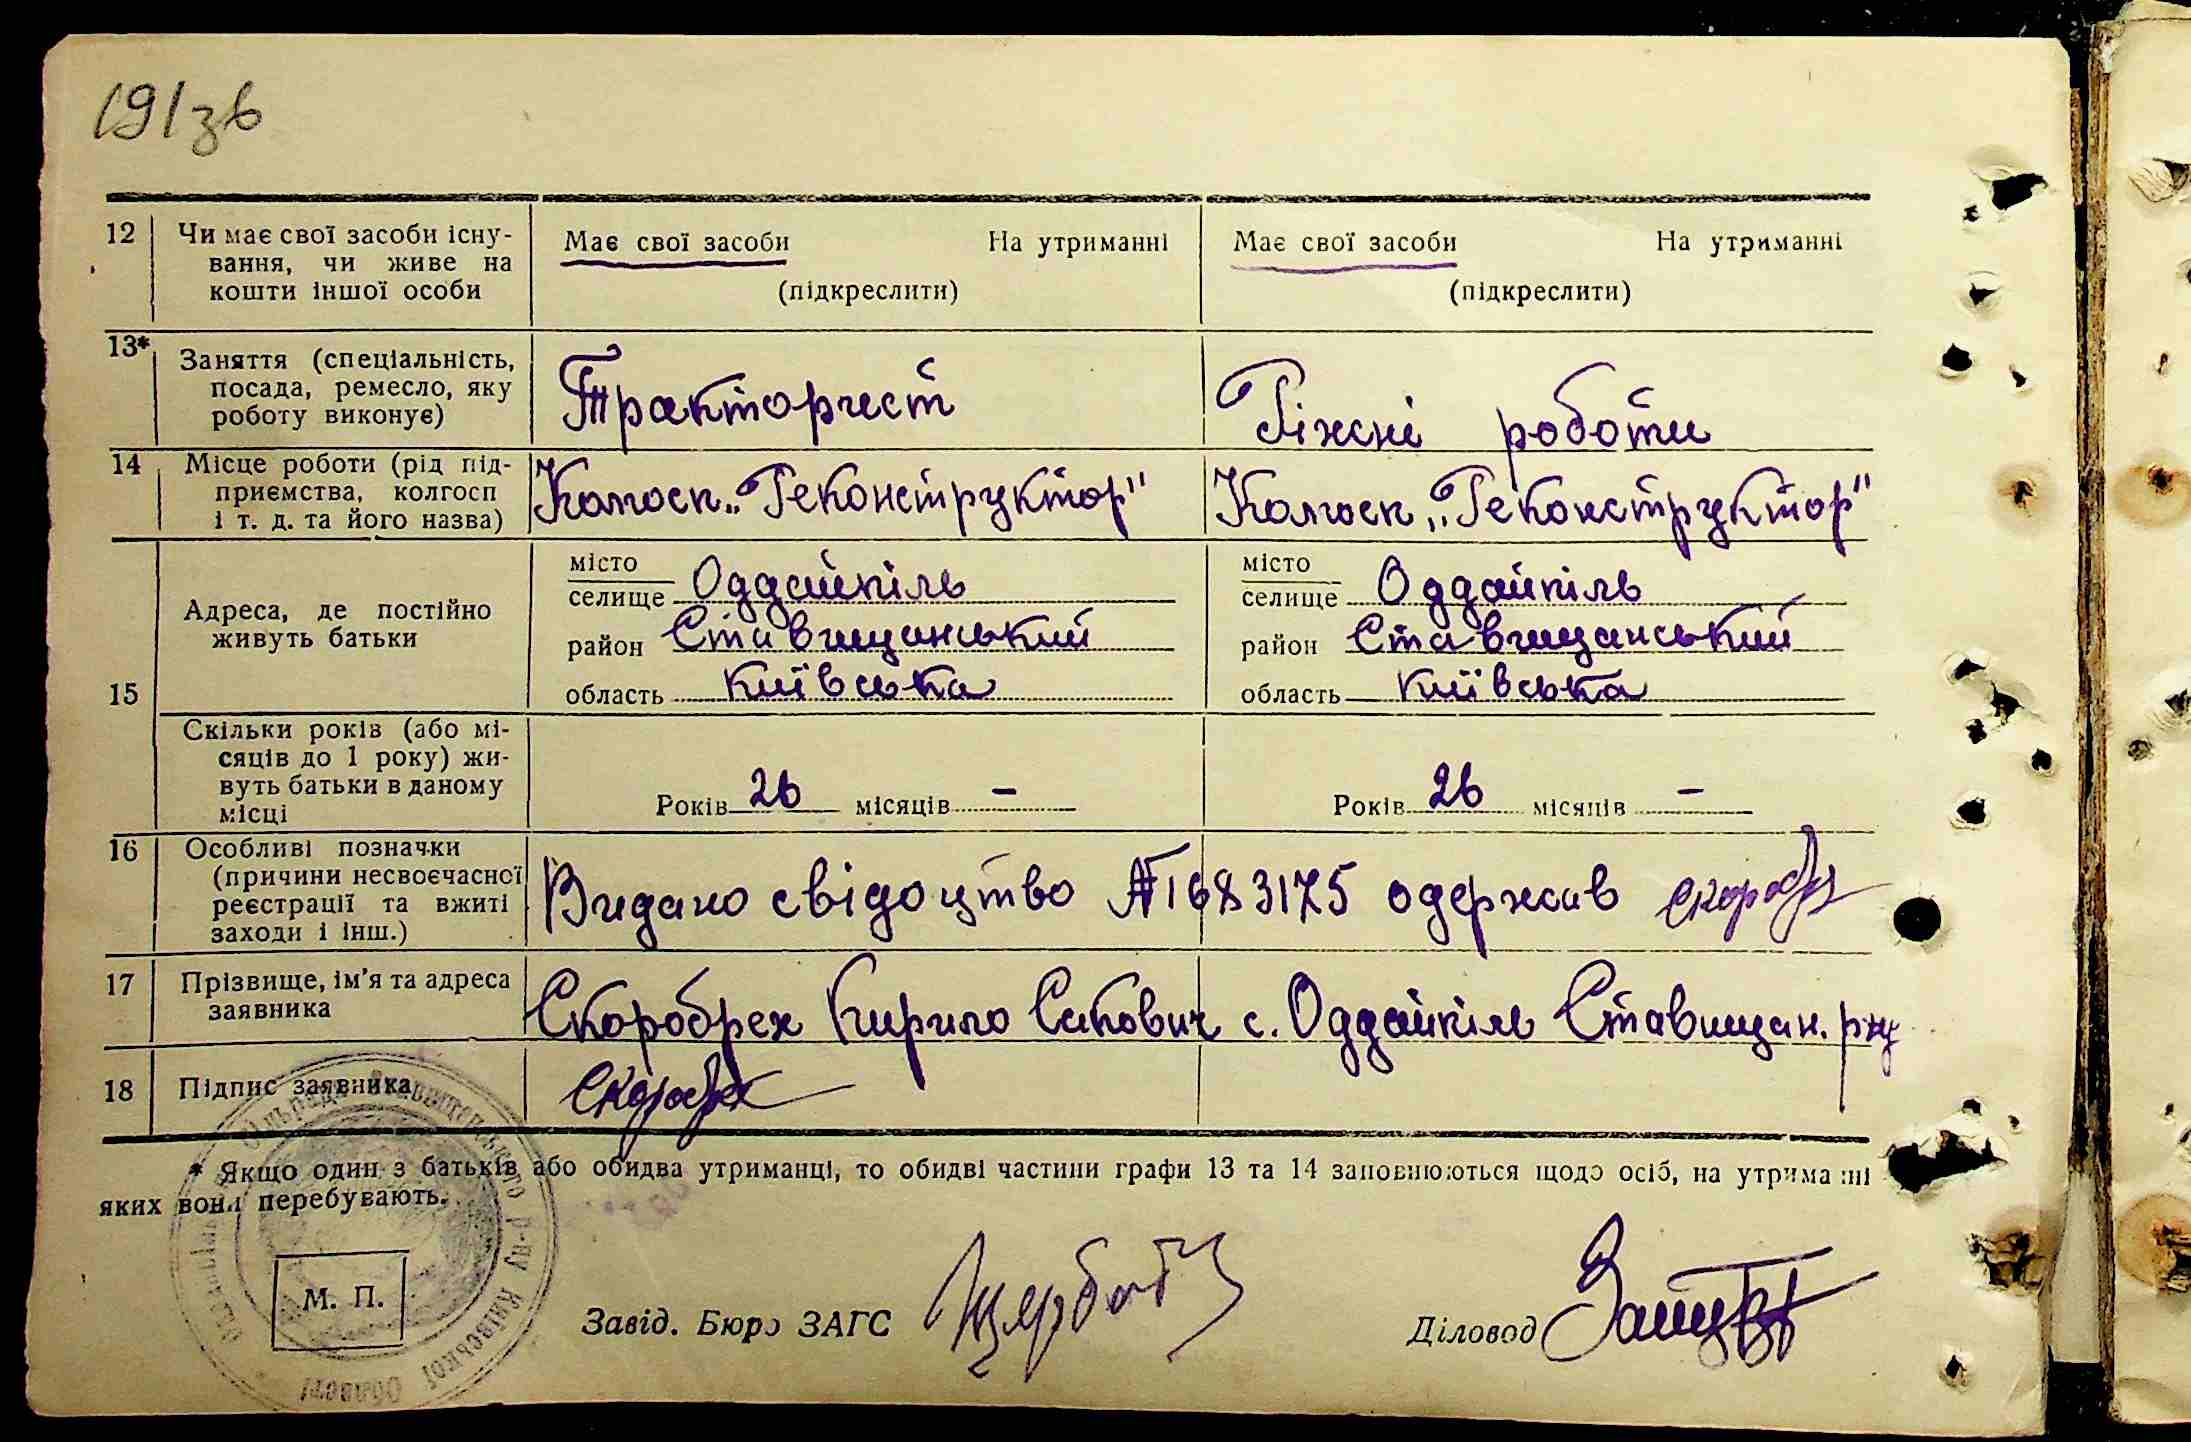 191зв
12 Чи має свої засоби існу- Має свої засоби На утриманні Має свої засоби На утриманні
вання, чи живе на
кошти іншої особи (підкреслити) (підкреслити)
13* Заняття (спеціальність,
посада, ремесло, яку Тракторист Ріжні роботи
роботу виконує)
14 Місце роботи (рід під-
приємства, колгосп Колгосп „Реконструктор" Колгосп „Реконструктор"
і т. д. та його назва)
місто місто
селище Оддайпіль селище Оддайпіль
15 Адреса, де постійно
живуть батьки район Ставищанський район Ставищанський
область Київська область Київська
Скільки років (або мі-
сяців до 1 року) жи-
вуть батьки в даному
місці Років 26 місяців – Років 26 місяців –
16 Особливі позначки
(причини несвоєчасної
реєстрації та вжиті Видано свідоцтво № 1683175 одержав
заходи і інш.)
17 Прізвище, ім'я та адреса
заявника Скоробрех Кирило Сакович с. Оддайпіль Ставищан. р-ну
18 Підпис заявника Скоробрех
* Якщо один з батьків або обидва утриманці, то обидві частини графи 13 та 14 заповнюються щодо осіб, на утриманні
яких вони перебувають.
М. П.
Завід. Бюро ЗАГС Діловод